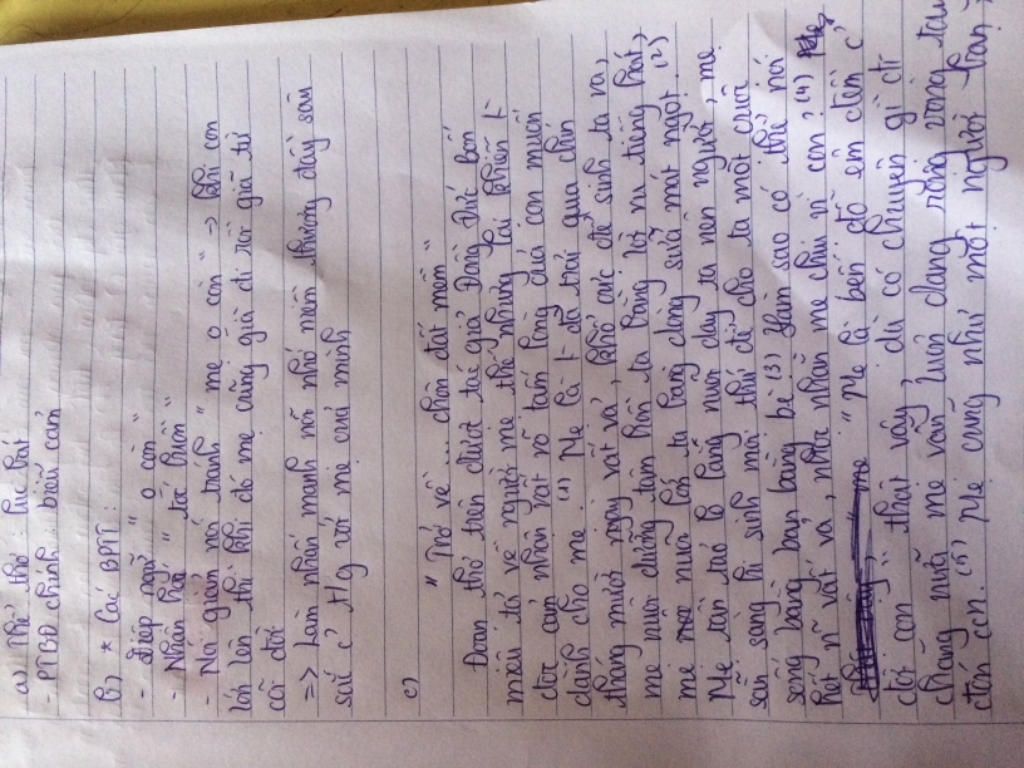 a) Thể thơ : lục bát
- PTBĐ chính : biểu cảm
b) * Các BPTT :
- Điệp ngữ " o còn "
- Nhân hoá " tóc buồn "
- Nói giảm nói tránh " mẹ o còn " => khi con
lớn lên thì khi đó mẹ cũng già đi rồi giã từ
cõi đời
=> Làm nhấn mạnh nỗi nhớ niềm thương đầy sâu
sắc c² t/g với mẹ của mình
c)
" Trở về ... chân đất mềm "
Đoạn thơ trên của tác giả Đồng Đức Bốn
miêu tả về người mẹ thế nhưng lại khiến t
đọc cảm nhận rất rõ tấm lòng của con muốn
dành cho mẹ . (1) Mẹ là t đã trải qua chín
tháng mười ngày vất vả, khổ cực để sinh ta ra,
mẹ nuôi dưỡng tâm hồn ta bằng lời ru tiếng hát,
mẹ nuôi lớn ta bằng dòng sữa mát ngọt. (2)
Mẹ tần tảo lo lắng nuôi dạy ta nên người, mẹ
sẵn sàng hi sinh mọi thứ để cho ta một cuộc
sống bằng bạn bằng bè. (3) Làm sao có thể nói
hết nỗi vất vả, nhọc nhằn mẹ chịu vì con ? (4)
" Mẹ là bến đỗ êm đềm c²
đời con " thật vậy, dù có chuyện gì đi
chăng nữa mẹ vẫn luôn dang rộng vòng tay
đón con. (5) Mẹ cũng như một người bạn,